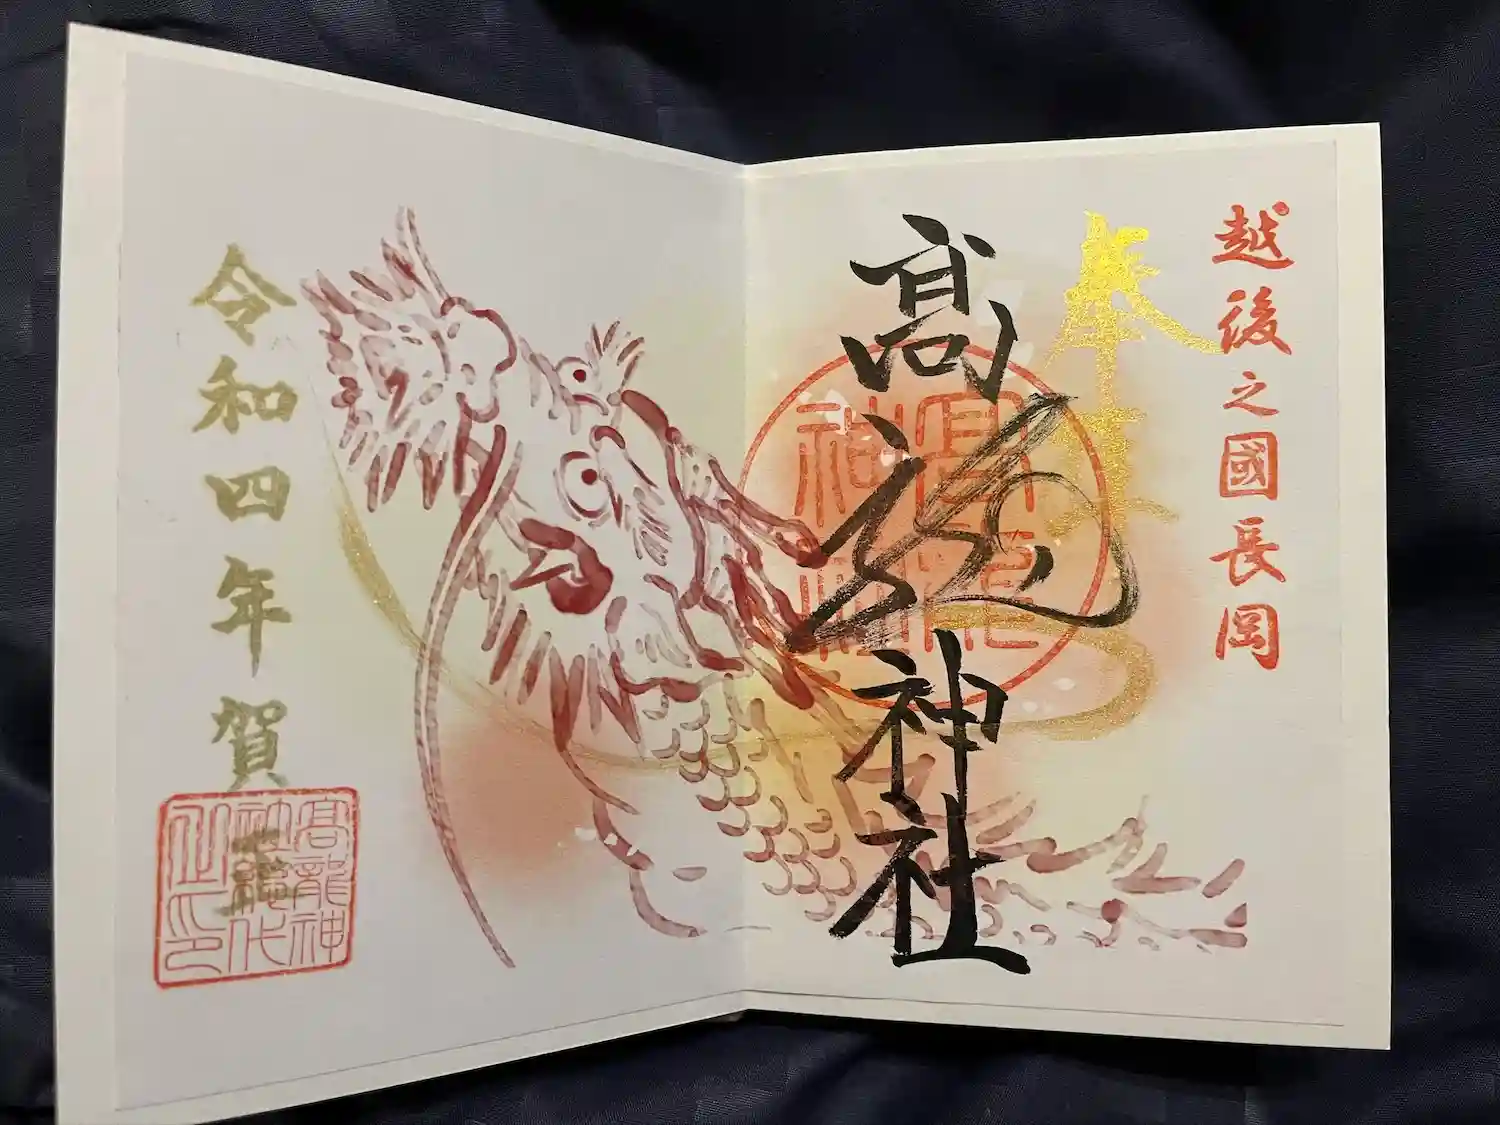 越後之國長岡
奉拝
高龍神社
高龍
神社
令和四年賀
高龍神
社總代
之印